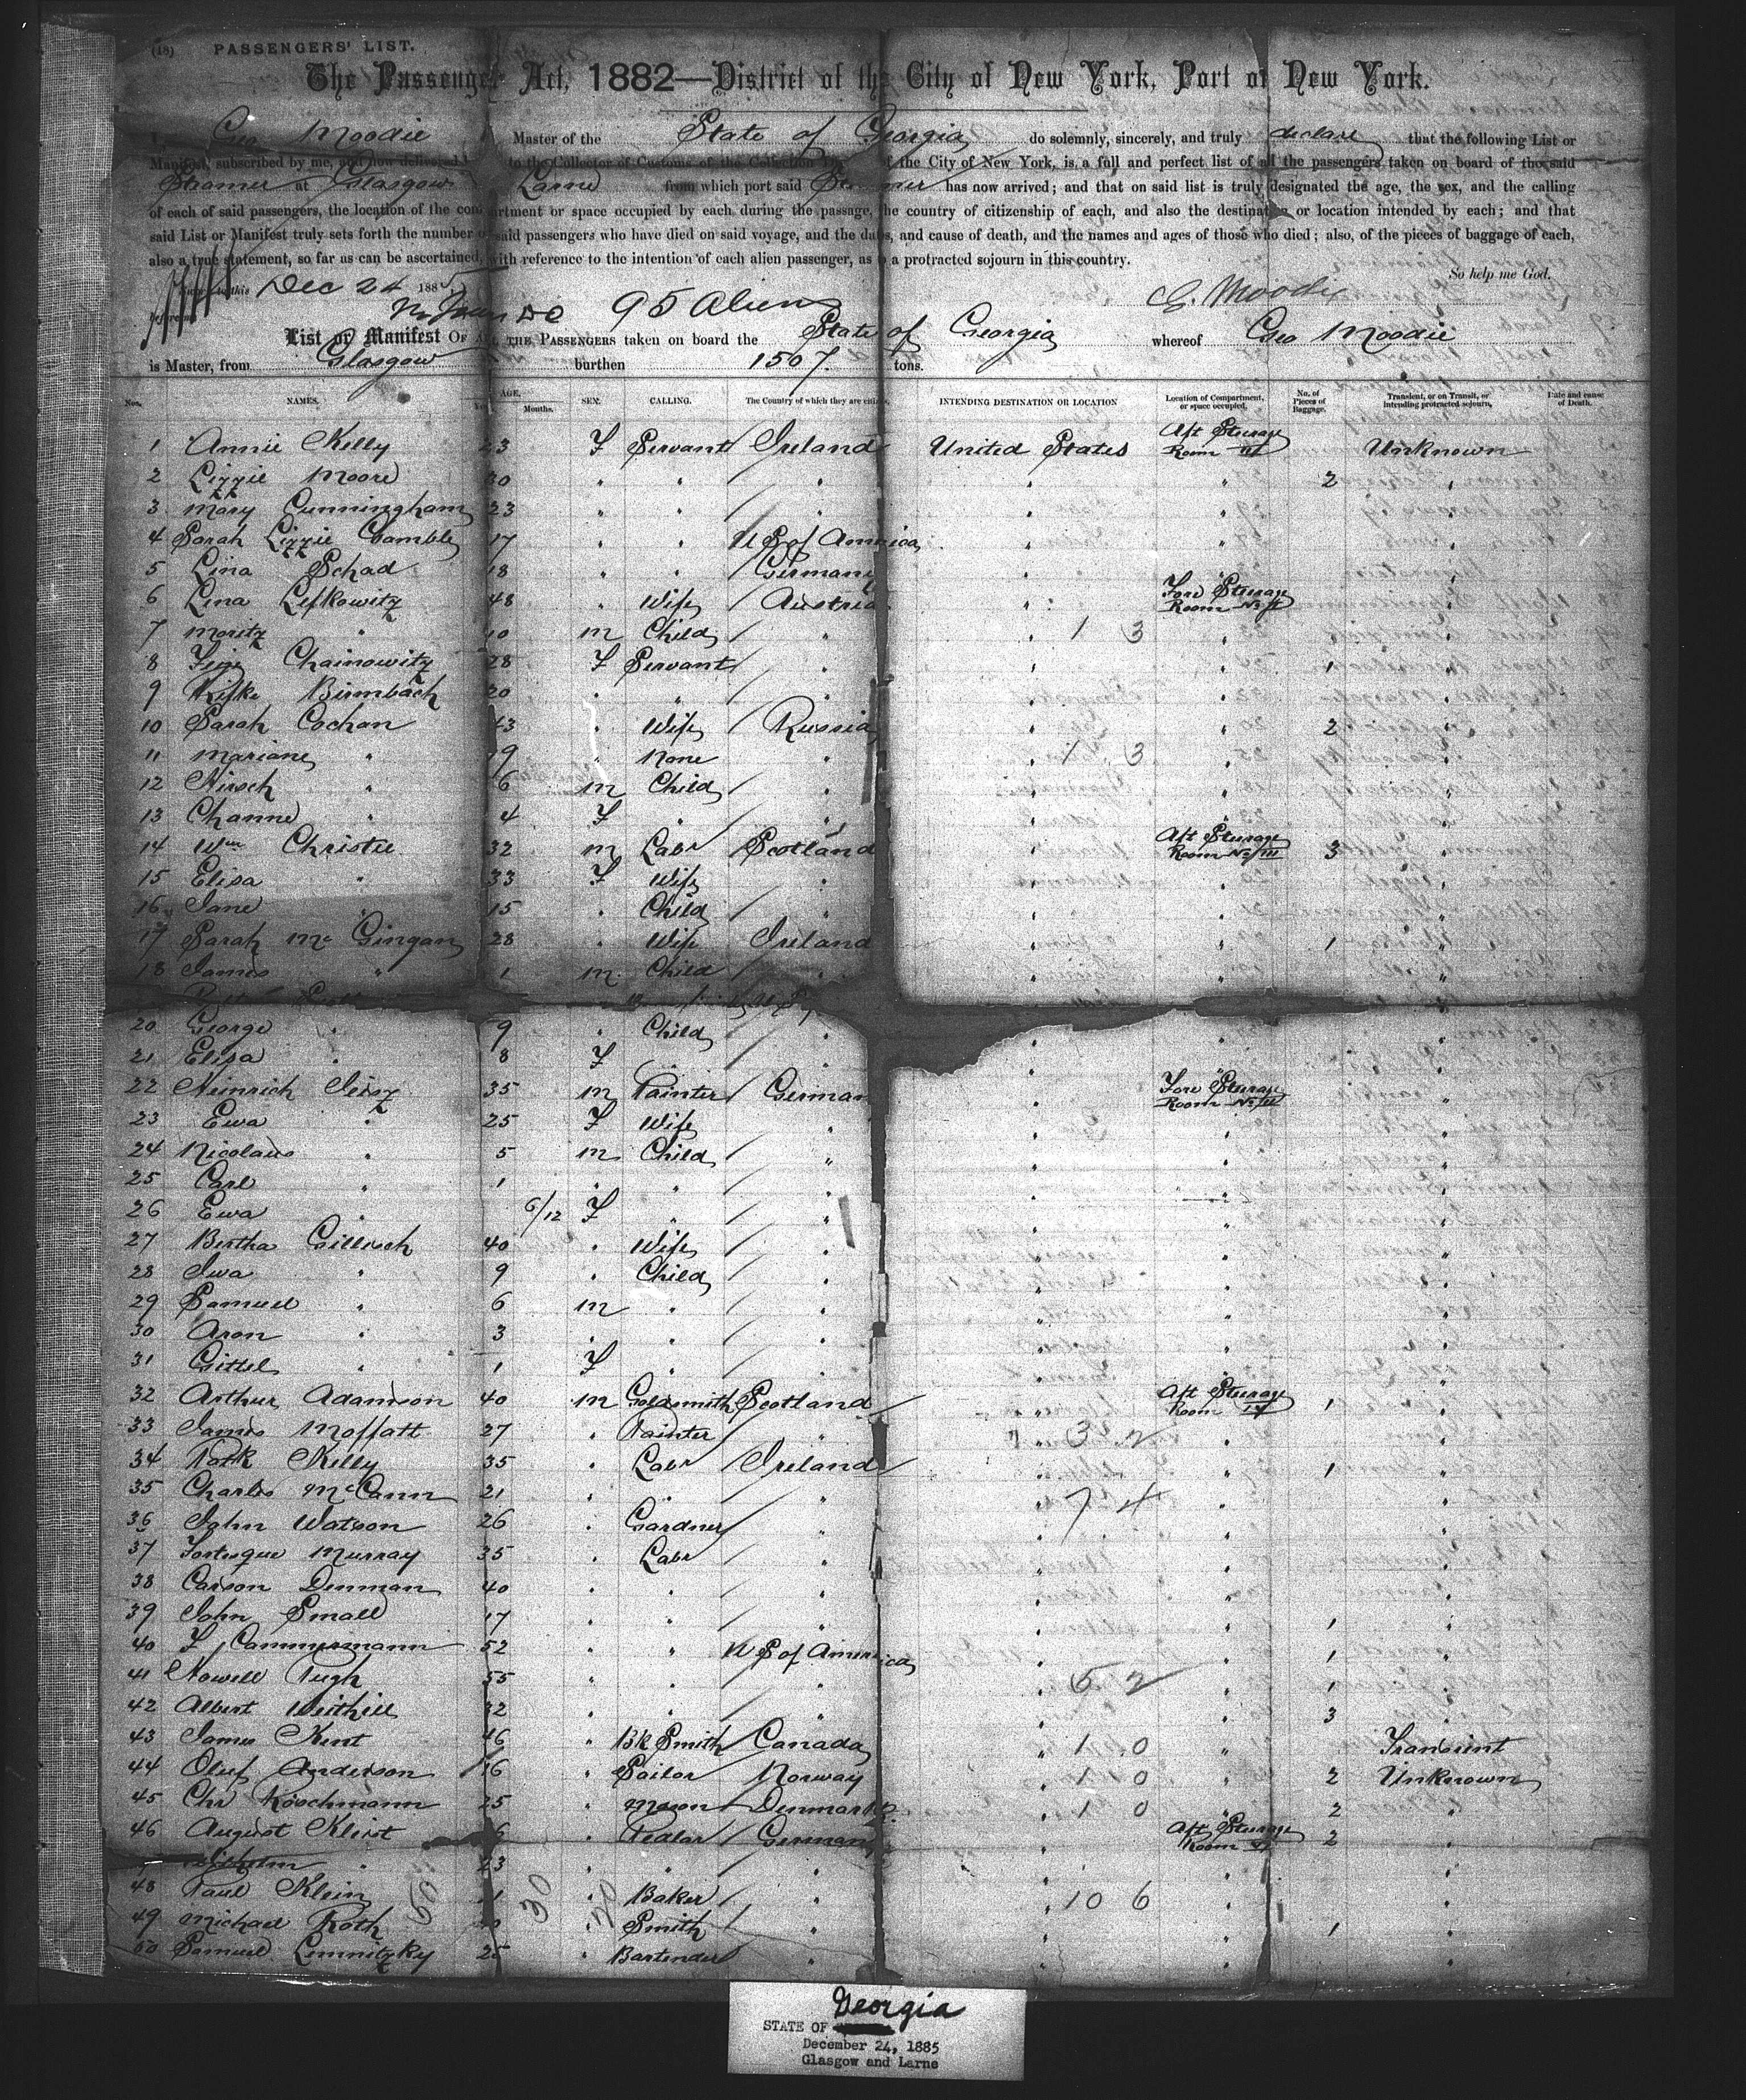 (18) PASSENGERS' LIST.
The Passenger Act, 1882—District of the City of New York, Port of New York.
I, Geo Moodie Master of the State of Georgia do solemnly, sincerely, and truly declare that the following List or
Manifest, subscribed by me, and now delivered to the Collector of Customs of the Collection of the City of New York, is a full and perfect list of all the passengers taken on board of the said
Steamer at Glasgow Larne from which port said Steamer has now arrived; and that on said list is truly designated the age, the sex, and the calling
of each of said passengers, the location of the compartment or space occupied by each during the passage, the country of citizenship of each, and also the destination or location intended by each; and that
said List or Manifest truly sets forth the number of said passengers who have died on said voyage, and the dates, and cause of death, and the names and ages of those who died; also, of the pieces of baggage of each,
also a true statement, so far as can be ascertained, with reference to the intention of each alien passenger, as to a protracted sojourn in this country.
So help me God.
this Dec 24 1885
G. Moodie
95 Aliens
List or Manifest OF ALL THE PASSENGERS taken on board the State of Georgia whereof Geo Moodie
is Master, from Glasgow burthen 1507 tons.
Nos. NAMES. AGE. Months. SEX. CALLING. The Country of which they are citizens. INTENDING DESTINATION OR LOCATION Location of Compartment, or space occupied. No. of Pieces of Baggage. Transient, or on Transit, or intending protracted sojourn. Date and cause of Death.
1 Annie Kelly 23 F Servant Ireland United States Aft Steerage Room III Unknown
2 Lizzie Moore 30 " " " " " 2 "
3 Mary Cunningham 23 " " " " " "
4 Sarah Lizzie Gamble 17 " " U S of America " " "
5 Lina Schad 18 " " Germany " " "
6 Lina Lefkowitz 48 " Wife Austria " Fore Steerage Room No II "
7 Moritz " 10 m Child " " 1 3 " "
8 Feige Chainowitz 28 F Servant " " " 1 "
9 Rifke Birmbach 20 " " " " " "
10 Sarah Cochan 43 " Wife Russia " " 2 "
11 Mariane " 9 " None " " 1 3 " "
12 Hirsch " 6 m Child " " " "
13 Channe " 4 F " " " " "
14 Wm Christie 32 m Labr Scotland " Aft Steerage Room No III 3 "
15 Elisa " 33 F Wife " " " "
16 Jane " 15 " Child " " " "
17 Sarah Mc Gingan 28 " Wife Ireland " " 1 "
18 James " 1 m Child " " " "
20 George " 9 " Child " " " "
21 Elisa " 8 F " " " " "
22 Heinrich 35 m Painter German " Fore Steerage Room No III "
23 Ewa " 25 F Wife " " " "
24 Nicolaus " 5 m Child " " " "
25 Carl " 1 " " " " " "
26 Ewa " 6/12 F " " " " "
27 Bertha Gillisch 40 " Wife " " " "
28 Iwa " 9 " Child " " " "
29 Samuel " 6 m " " " " "
30 Aron " 3 " " " " " "
31 Gittel " 1 F " " " " "
32 Arthur Adamson 40 m Goldsmith Scotland " Aft Steerage Room IV 1 "
33 James Moffatt 27 " Painter " " 3 2 " "
34 Patk Kelly 35 " Labr Ireland " " 1 "
35 Charles McCann 21 " " " " 7 4 " "
36 John Watson 26 " Gardner " " " "
37 Murray 35 " Labr " " " "
38 Carson Denman 40 " " " " " "
39 John Small 17 " " " " " 1 "
40 F Cammermann 52 " " U S of America " " 1 "
41 Howell Pugh 55 " " " " 5 2 " 1 "
42 Albert Weithill 32 " " " " " 3 "
43 James Kent 46 " Bk Smith Canada " 1 0 " Transient
44 Oluf Anderson 16 " Sailor Norway " 1 0 " 2 Unknown
45 Chr Koschmann 25 " Mason Denmark " 1 0 " 2 "
46 August Kleist " Pedlar Germany " Aft Steerage Room V 2 "
Wilhelm " 23 " " " " " "
48 Paul Klein " Baker " " 10 6 " "
49 Michael Roth " Smith " " " 1 "
50 Samuel Lemnitzky 25 " Bartender " " " "
50 30 20
Georgia
STATE OF
December 24, 1885
Glasgow and Larne